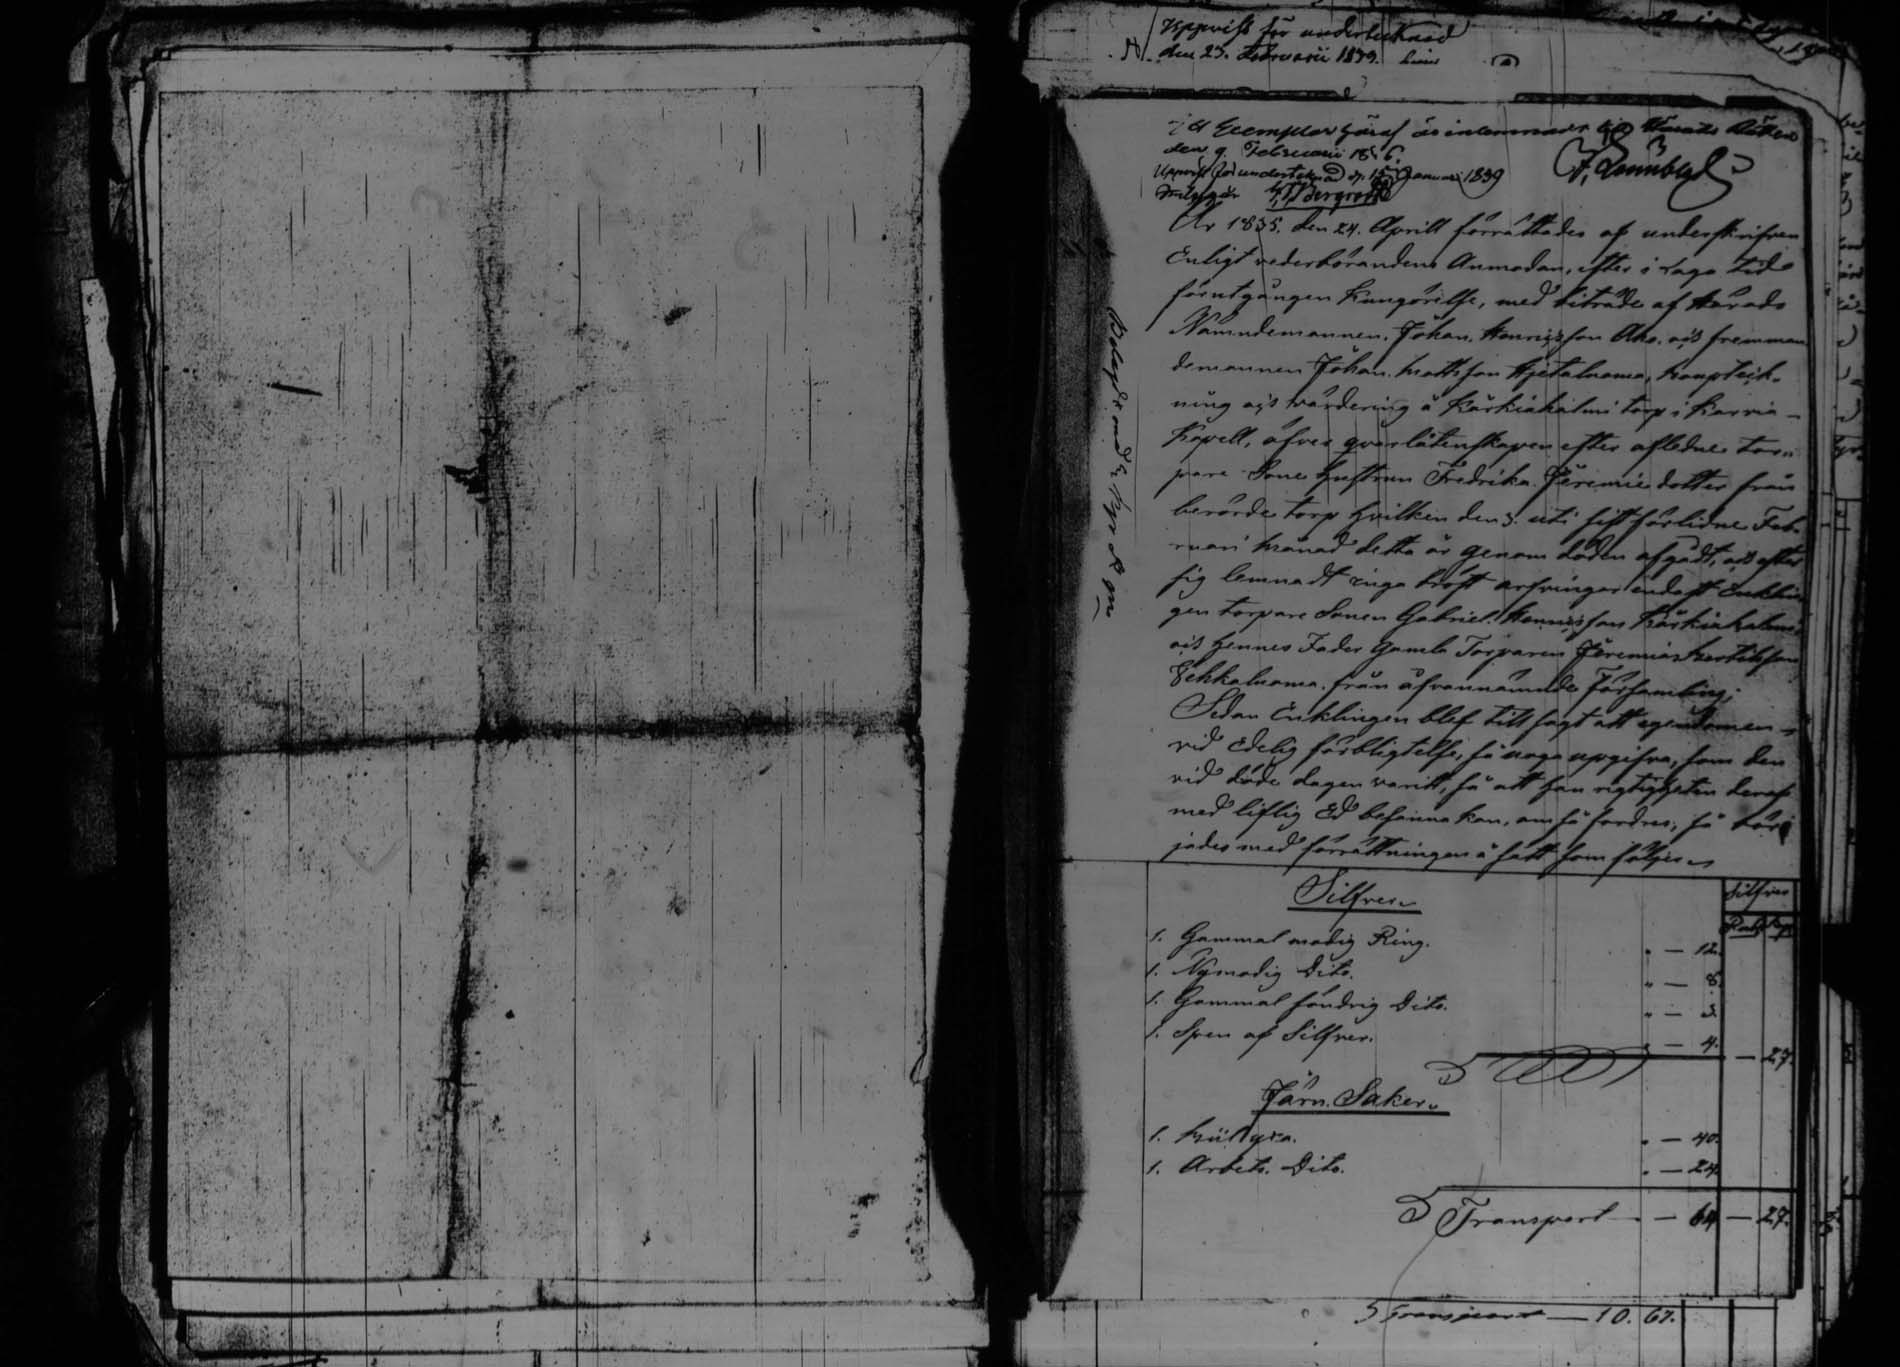 Uppvist för undertecknad
den 23. Februarii 1839.
Ett Exemplar häraf är inlemnadt till Härads Rätten
den 9. Februarii 1836.
F. Lönnblad
Uppvist för undertecknad d. 15 Januari 1839
G. A. Bergroth
År 1835. den 24. Aprill förrättades af underskrifven
Enligt vederbörandens Anmodan, efter i Laga tid
förutgången Kungörelse, med biträde af Härads
Nämndemannen, Johan Henricsson Aho, och fremman
demannen Johan Mattsson Hjetaluoma, Uppteck-
ning och värdering å Kärkiäkalmi torp i Karvia
Kapell, öfver qvarlåtenskapen efter aflidne tor-
pare Sone hustrun Fredrika Jeremie dotter från
berörde torp hvilken den 3. uti sistförlidne Feb-
ruari månad detta år genom döden afgådt, och efter
sig lemnadt inga bröst arfvingar endast Enklin
gen torpare Sonen Gabriel Henricsson Kärkiäkalmi
och hennes Fader gamle Torparen Jeremias Mattsson
från åfvannämnde Församling;
Sedan Enklingen blef till sagt att egendomen
vid Edelig förbligtelse, så noga uppgifva, som den
vid döde dagen varitt, så att han rigtigheten deraf
med liflig Ed besanna kan, om så fordras; så bör-
jades med förrättningen å sätt som följer
Silfver
Silfver
Rub. Kop.
1. Gammal modig Ring. " — 12.
1. Nymodig Dito. " — 8.
1. Gammal söndrig Dito. " — 3.
1. Spen af Silfver. " — 4. — 27.
Järn Saker
1. yxa. " — 40.
1. Arbets Dito. " — 24.
Transport — 64 — 27.
Transport — 10. 67.